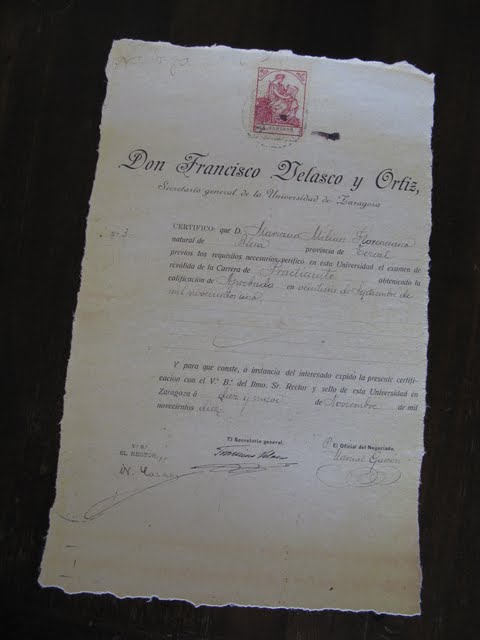 Don Francisco Velasco y Ortiz,
Secretario general de la Universidad de Zaragoza
Nº 3
CERTIFICO: que D. Mariano Milian Florenciano
natural de provincia de Teruel
previos los requisitos necesarios verificó en esta Universidad el examen de
reválida de la Carrera de Practicante obteniendo la
calificación de Aprobado en veintiuno de Septiembre de
mil novecientos uno.
Y para que conste, á instancia del interesado expido la presente certifi-
cación con el V.º B.º del Ilmo. Sr. Rector y sello de esta Universidad en
Zaragoza á diez y nueve de Noviembre de mil
novecientos diez
V.º B.º
EL RECTOR,
El Secretario general,
Francisco Velasco
El Oficial del Negociado,
Manuel